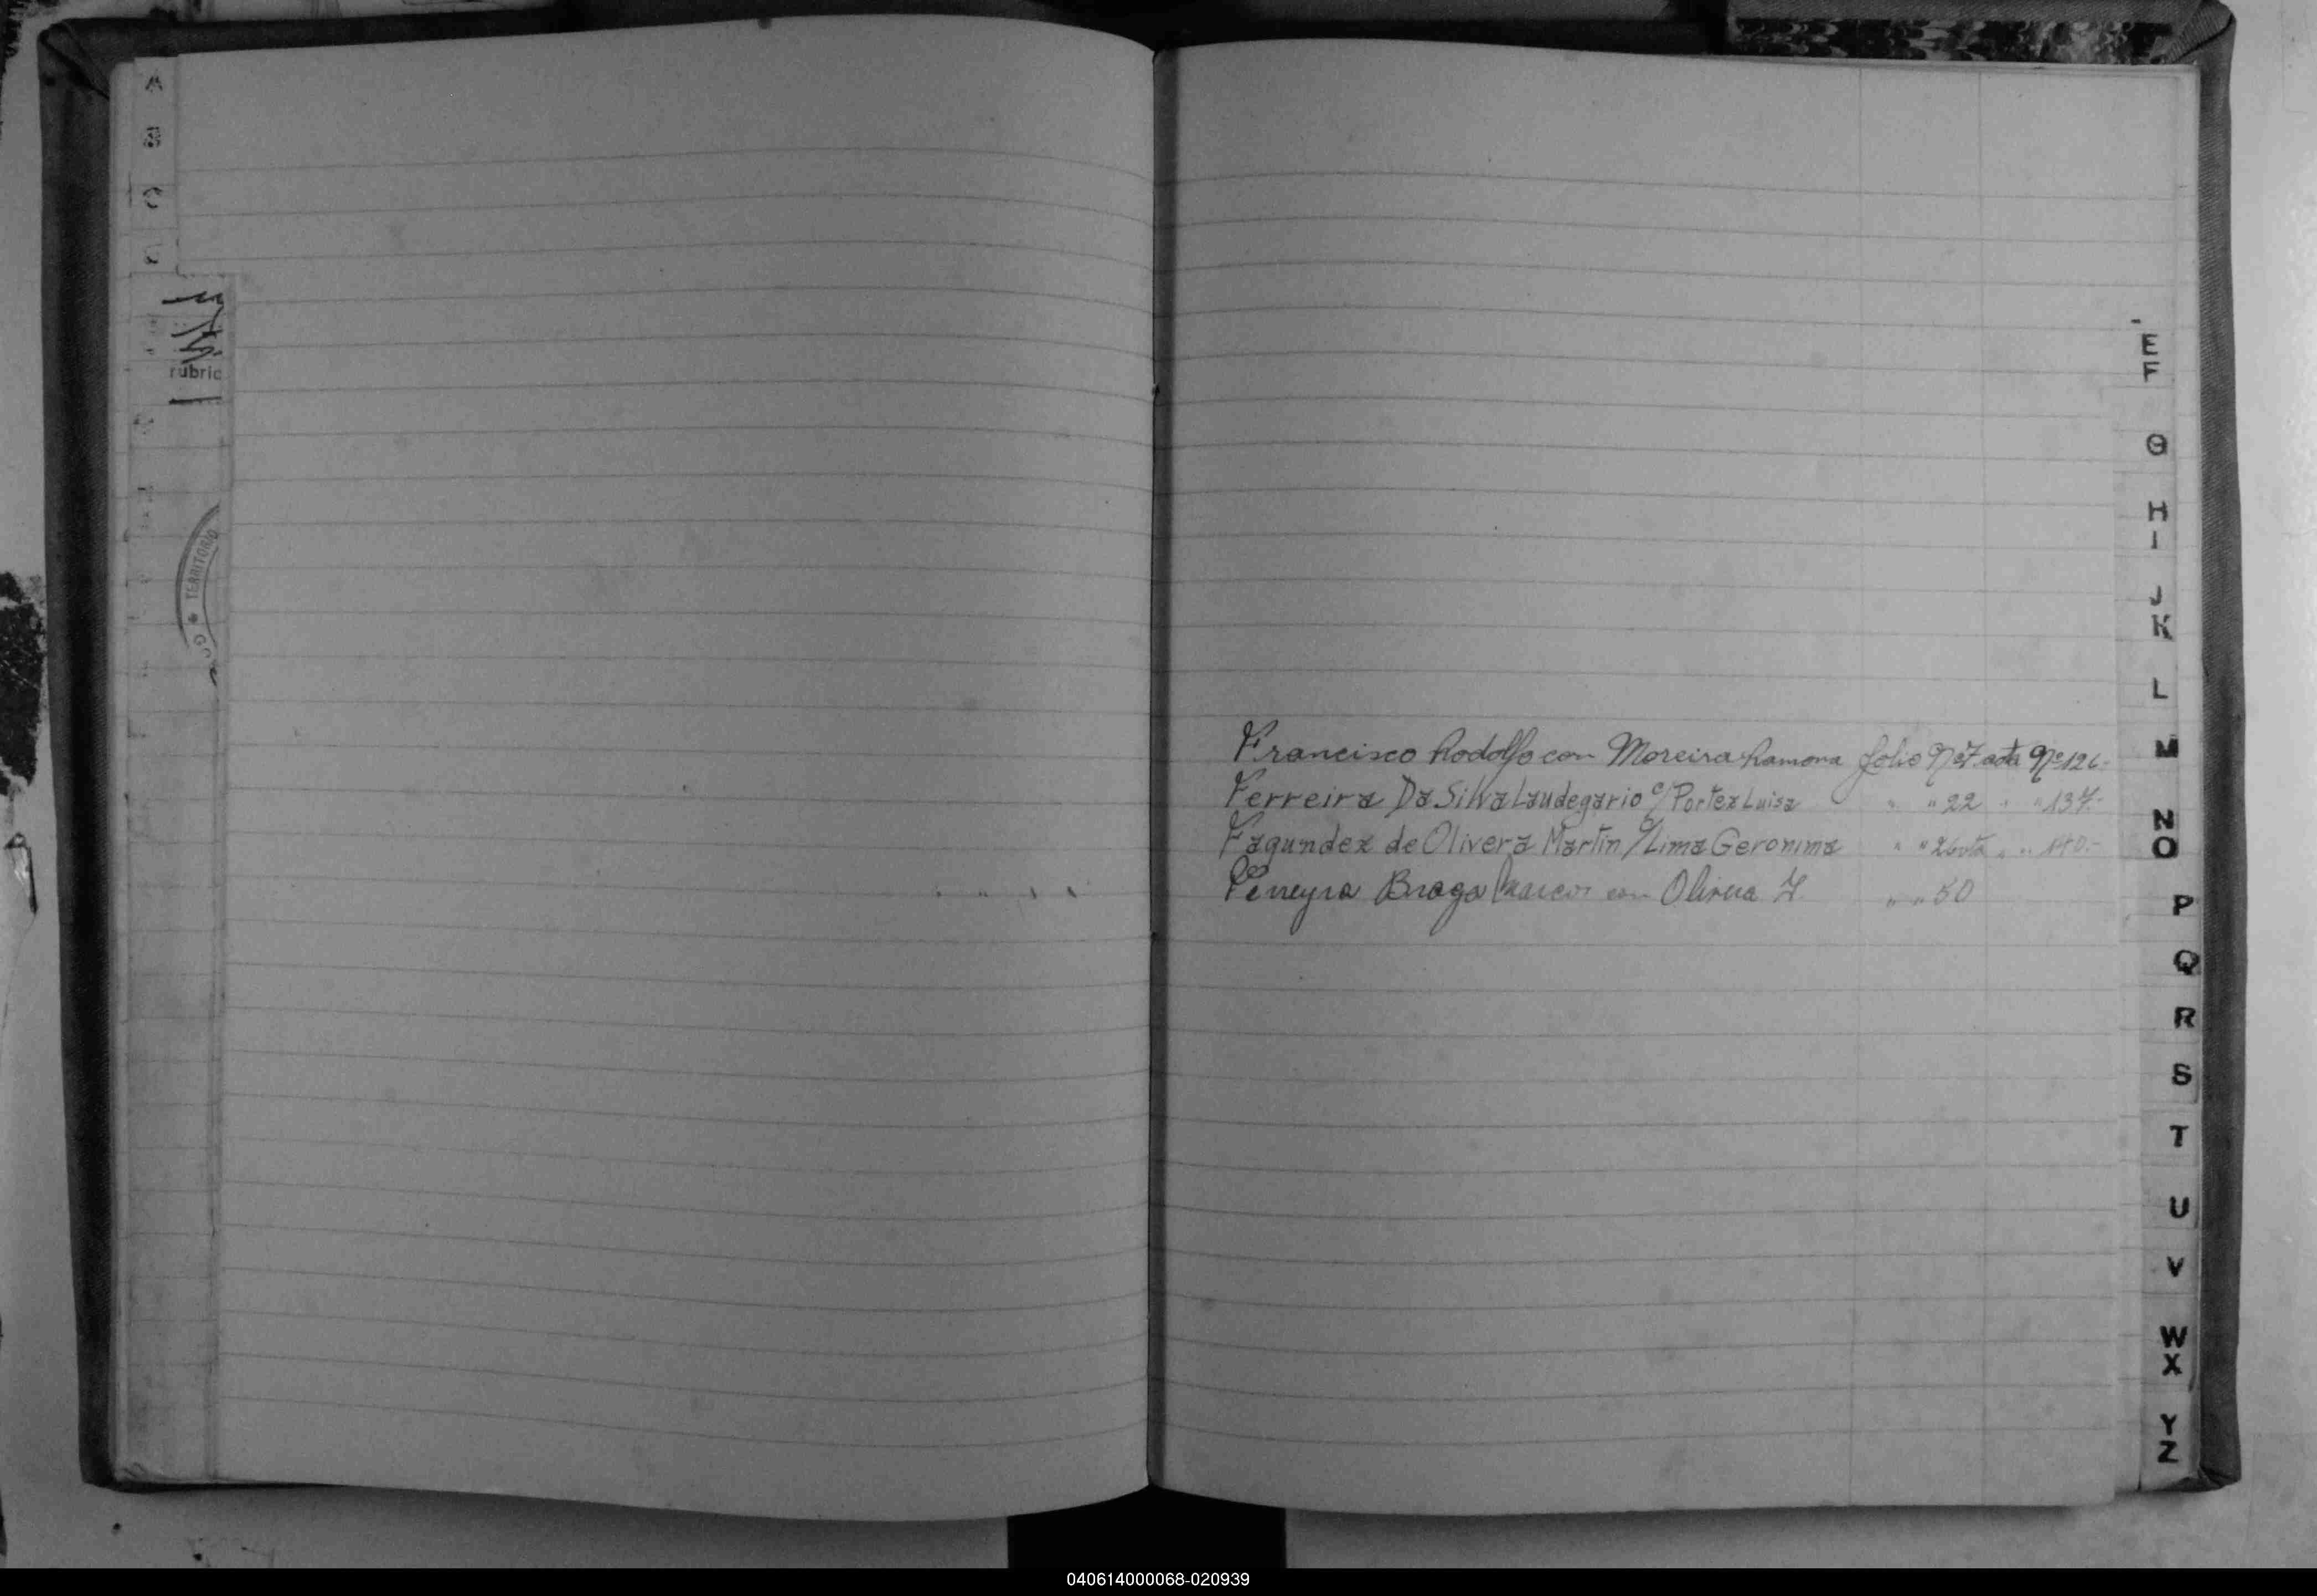 A
B
C
rubric
TERRITORIO
Francisco Rodolfo con Moreira Ramona folio Nº 7 acta Nº 126.-
Ferreira Da Silva Laudegario c/ Portez Luisa " " 22 " " 137.-
Fagundez de Olivera Martin c/ Lima Geronima " " 26vta " " 140.-
Ferreyra Braga Marcos con Olivua " " 50
E
F
G
H
I
J
K
L
M
N
O
P
Q
R
S
T
U
V
W
X
Y
Z
040614000068-020939